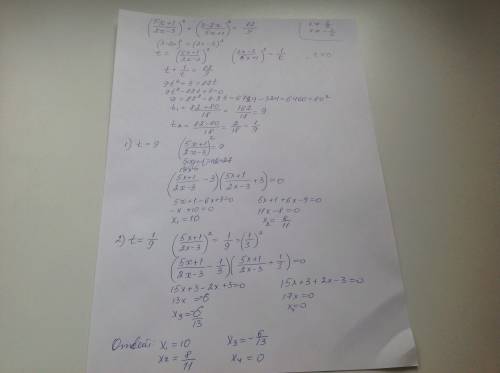 ((5x+1)/(2x-3))² + ((3-2x)/(5x+1))² = 82/9
(3-2x)² = (2x-3)²
t = ((5x+1)/(2x-3))² ((2x-3)/(5x+1))² = 1/t
t + 1/t = 82/9
9t² + 9 = 82t
9t² - 82t + 9 = 0
t₁ = (82+80)/18 = 162/18 = 9
t₂ = (82-80)/18 = 2/18 = 1/9
1) t = 9 ((5x+1)/(2x-3))² = 9
((5x+1)/(2x-3) - 3)((5x+1)/(2x-3) + 3) = 0
5x+1-6x+9=0 5x+1+6x-9=0
-x+10=0 11x-8=0
x₁=10 x₂=8/11
2) t = 1/9 ((5x+1)/(2x-3))² = 1/9 = (1/3)²
((5x+1)/(2x-3) - 1/3)((5x+1)/(2x-3) + 1/3) = 0
15x+3-2x+3=0 15x+3+2x-3=0
13x = -6 17x=0
x₃=-6/13 x=0
Ответ: x₁ = 10 x₃ = -6/13
x₂ = 8/11 x₄ = 0